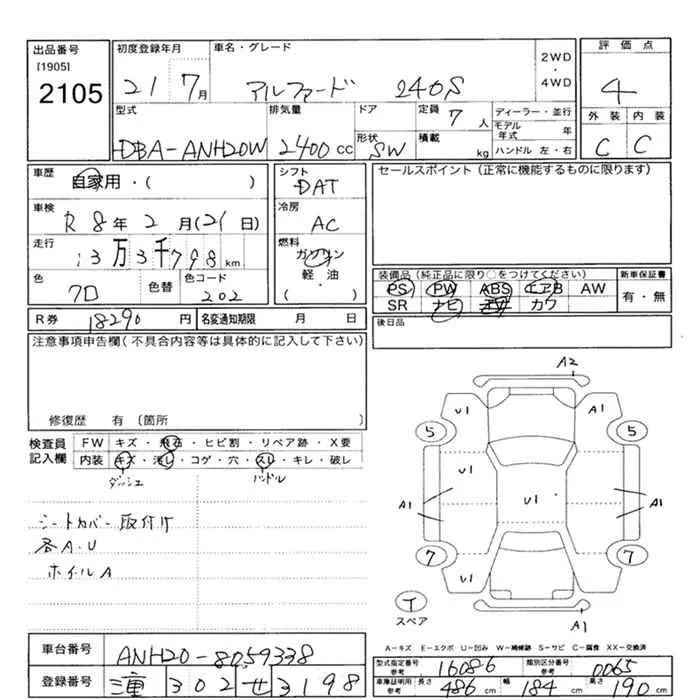 出品番号
[1905]
2105
初度登録年月
21 7月
車名・グレード
アルファード 240S
2WD
・
4WD
評価点
4
外装 内装
C C
型式
DBA-ANH20W
排気量
2400 cc
ドア
形状
SW
定員 7 人
積載 kg
ディーラー・並行
モデル年式 年
ハンドル 左・右
車歴
自家用・( )
車検
R8年2月(21日)
走行
13万3千798km
色
クロ
色替
色コード
202
シフト
DAT
冷房
AC
燃料
ガソリン
軽・油
( )
セールスポイント(正常に機能するものに限ります)
装備品(純正品に限り○をつけてください)
PS PW ABS エアB AW
SR ナビ カワ
新車保証書
有・無
R券 18290 円
名変通知期限 月 日
後日品
注意事項申告欄(不具合内容等は具体的に記入して下さい)
修復歴 有 〔箇所 〕
検査員記入欄
FW キズ・飛石・ヒビ割・リペア跡・X要
内装 キズ・汚レ・コゲ・穴・スレ・キレ・破レ
ダッシュ ハンドル
シートカバー取付け
各A.U
ホイールA
A2
U1 A1
5 5
U1
A1 U1 A1
7 7
U1
T
スペア
A1
A-キズ E-エクボ U-凹み W-補修跡 S-サビ C-腐食 XX-交換済
車台番号
ANH20-8059338
登録番号
302 せ 3198
型式指定番号
参考
16086
類別区分番号
参考
0065
車庫証明用
参考
長さ 486 cm
幅 184 cm
高さ 190 cm